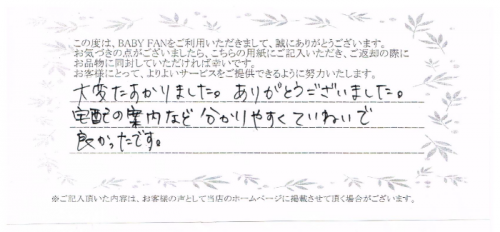 この度は、BABY FANをご利用いただきまして、誠にありがとうございます。
お気づきの点がございましたら、こちらの用紙にご記入いただき、ご返却の際に
お品物に同封していただければ幸いです。
お客様にとって、よりよいサービスをご提供できるように努力いたします。
大変たすかりました。ありがとうございました。
宅配の案内など分かりやすくていねいで
良かったです。
※ご記入頂いた内容は、お客様の声として当店のホームページに掲載させて頂く場合がございます。